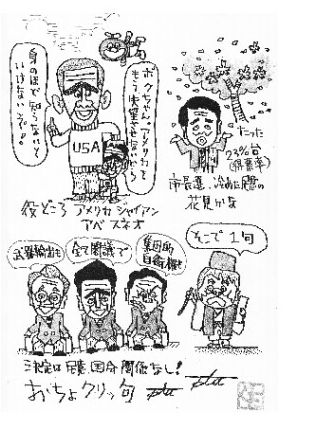 ボクちゃん、アメリカを
もう失望させないから
身のほど知らないと
いけないぞ。
USA
たった
23%台
(得票率)
市長選、冷めた
花見かな
役どころ アメリカ ジャイアン
アベ スネオ
武器輸出も
全て閣議で
集団的
自衛権も
そこで1句
決定は 関係なし!
おちょクリッ句